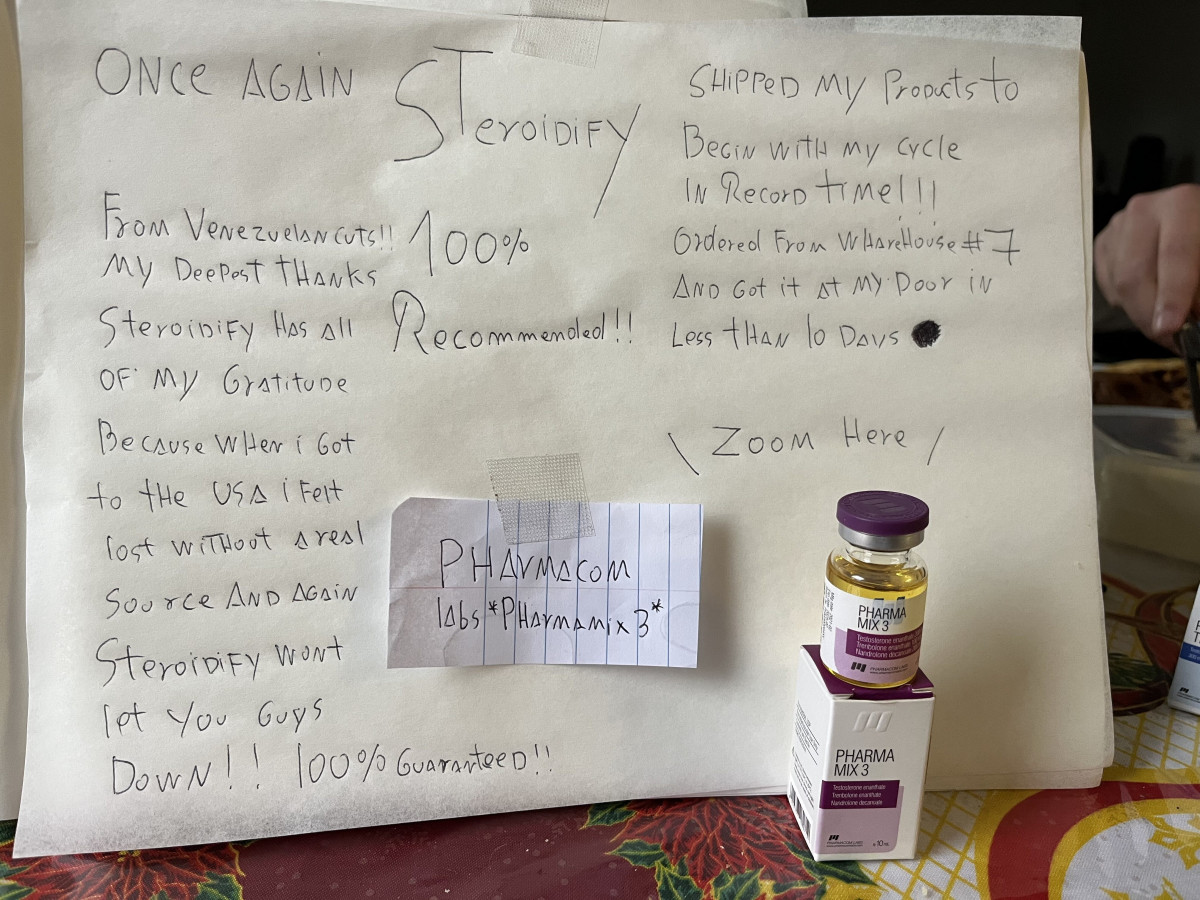 ONCE AGAIN
STEROIDIFY
FROM VENEZUELANCUTS!!
MY DEEPEST THANKS
STEROIDIFY HAS All
OF MY GRATITUDE
BECAUSE WHEN i GOT
to tHE USA i FElt
lost WITHOUT A real
Source AND AGAIN
STEROIDIFY WONT
let YOU GUYS
DOWN!! 100% GUARANTEED!!
100%
Recommended!!
SHIPPED MY PRODUCTS to
BEGIN WITH MY CYCLE
IN RECORD TIME!!!
Ordered From WHAREHOUSE #7
AND GOT it At MY DOOR IN
LESS THAN 10 DAYS
\ ZOOM HERE /
PHARMACOM
labs *PHARMAMIX 3*
PHARMA
MIX 3
Testosterone enanthate
Trenbolone enanthate
Nandrolone decanoate
PHARMACOM LABS
PHARMA
MIX 3
Testosterone enanthate
Trenbolone enanthate
Nandrolone decanoate
PHARMACOM LABS
10 mL